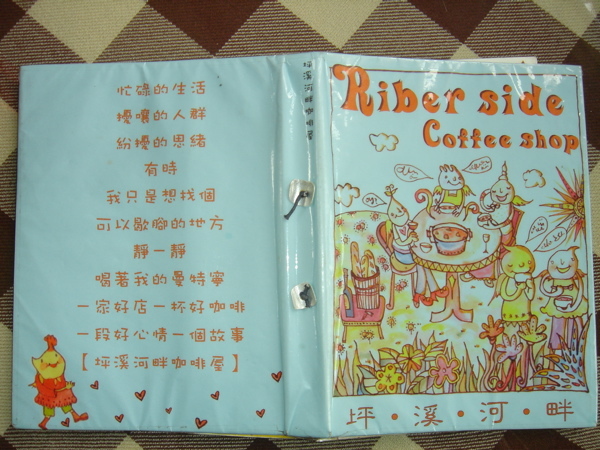 忙碌的生活
擾嚷的人群
紛擾的思緒
有時
我只是想找個
可以歇腳的地方
靜一靜
喝著我的曼特寧
一家好店一杯好咖啡
一段好心情一個故事
【坪溪河畔咖啡屋】
坪溪河畔咖啡屋
Riber side
Coffee shop
坪・溪・河・畔